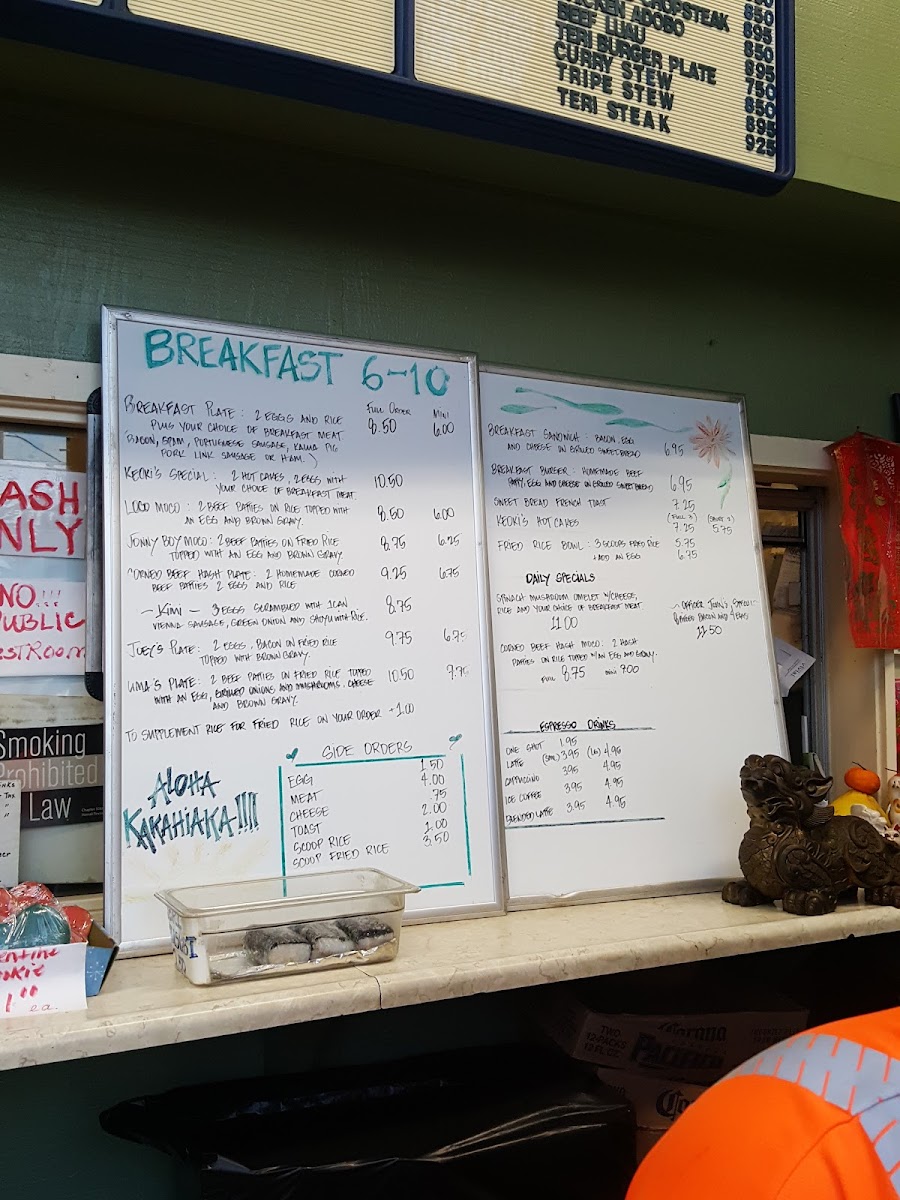 CHOPSTEAK 850
CHICKEN ADOBO 895
BEEF LUAU 850
TERI BURGER PLATE 895
CURRY STEW 750
TRIPE STEW 850
TERI STEAK 895
925
BREAKFAST 6-10
FULL ORDER MINI
BREAKFAST PLATE: 2 EGGS AND RICE 8.50 6.00
PLUS YOUR CHOICE OF BREAKFAST MEAT
(BACON, SPAM, PORTUGUESE SAUSAGE, KALUA PIG
PORK LINK SAUSAGE OR HAM.)
KEOKI'S SPECIAL: 2 HOT CAKES, 2 EGGS WITH 10.50
YOUR CHOICE OF BREAKFAST MEAT.
LOCO MOCO: 2 BEEF PATTIES ON RICE TOPPED WITH 8.50 6.00
AN EGG AND BROWN GRAVY.
JONNY BOY MOCO: 2 BEEF PATTIES ON FRIED RICE 8.75 6.25
TOPPED WITH AN EGG AND BROWN GRAVY.
CORNED BEEF HASH PLATE: 2 HOMEMADE CORNED 9.25 6.75
BEEF PATTIES 2 EGGS AND RICE
~KIMI~ 3 EGGS SCRAMBLED WITH 1 CAN 8.75
VIENNA SAUSAGE, GREEN ONION AND SHOYU WITH RICE.
JOEY'S PLATE: 2 EGGS, BACON ON FRIED RICE 9.75 6.75
TOPPED WITH BROWN GRAVY.
UMA'S PLATE: 2 BEEF PATTIES ON FRIED RICE TOPPED 10.50 9.75
WITH AN EGG, GRILLED ONIONS AND MUSHROOMS. CHEESE
AND BROWN GRAVY.
TO SUPPLEMENT RICE FOR FRIED RICE ON YOUR ORDER +1.00
ALOHA
KAKAHIAKA!!!!
SIDE ORDERS
EGG 1.50
MEAT 4.00
CHEESE .75
TOAST 2.00
SCOOP RICE 1.00
SCOOP FRIED RICE 3.50
BREAKFAST SANDWICH: BACON, EGG
AND CHEESE ON GRILLED SWEETBREAD 6.95
BREAKFAST BURGER: HOMEMADE BEEF
PATTY, EGG AND CHEESE ON GRILLED SWEETBREAD 6.95
SWEET BREAD FRENCH TOAST 7.25
KEOKI'S HOT CAKES (FULL 3) 7.25 (SHORT 2) 5.75
FRIED RICE BOWL: 3 SCOOPS FRIED RICE 5.75
+ADD AN EGG 6.75
DAILY SPECIALS
SPINACH MUSHROOM OMELET W/CHEESE,
RICE AND YOUR CHOICE OF BREAKFAST MEAT
11.00
~OFFICER JOHN'S
BACON AND
11.50
CORNED BEEF HASH MOCO: 2 HASH
PATTIES ON RICE TOPPED W/AN EGG AND GRAVY.
FULL 8.75 MINI 7.00
ESPRESSO DRINKS
ONE SHOT 1.95
LATTE (SM) 3.95 (LG) 4.95
CAPPUCCINO 3.95 4.95
ICE COFFEE 3.95 4.95
BLENDED LATTE 3.95 4.95
CASH
ONLY
NO!!!
PUBLIC
RESTROOM
Smoking
Prohibited
Law
Corona
Pacifico
TWO
12-PACKS
12 FL OZ
ea.